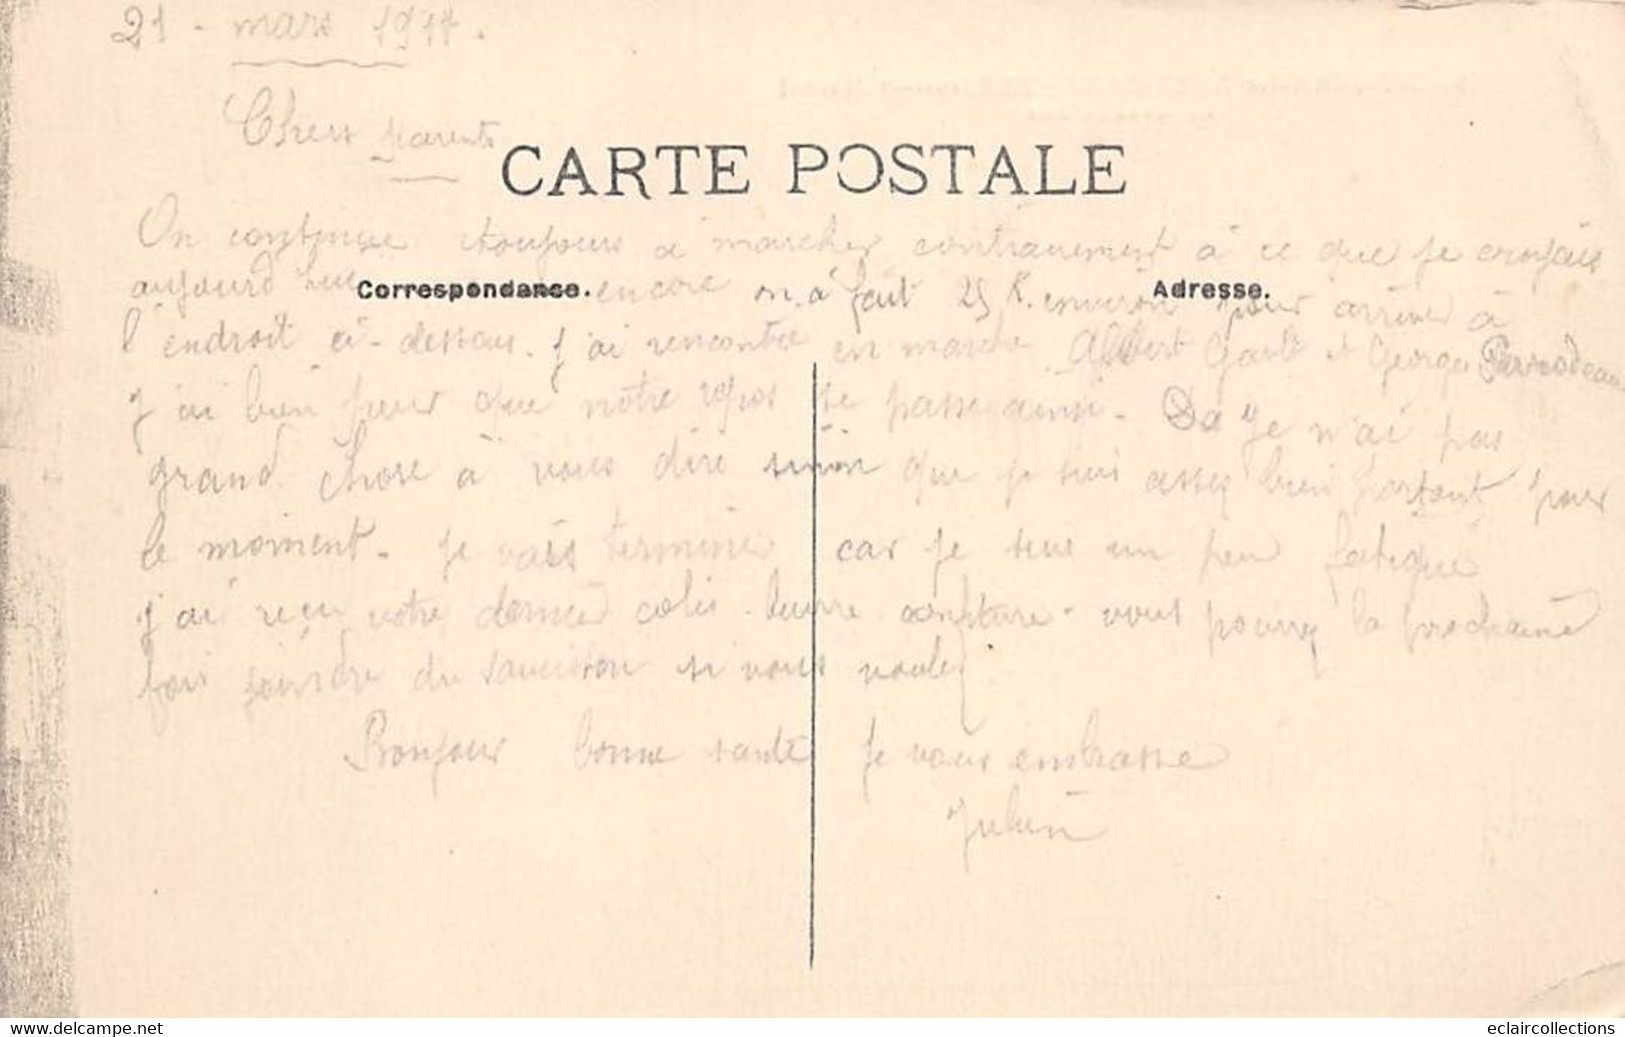 21 - mars 1917.
Chers parents
CARTE POSTALE
On continue toujours a marcher contrairement à ce que je croyais
aujourd'hui encore on a fait 25 K. environ pour arriver à
Correspondance.
Adresse.
l'endroit ci-dessous. J'ai rencontré en marche Albert et George
J'ai bien peur que notre repos se passe ainsi. Je n'ai pas
grand chose à vous dire sinon que je suis assez bien portant pour
le moment. je vais terminer car je suis un peu fatigué
j'ai reçu votre dernier colis beurre confiture. vous pourrez la prochaine
fois joindre du saucisson si vous voulez.
Bonjour bonne santé je vous embrasse
Julien
www.delcampe.net
eclaircollections